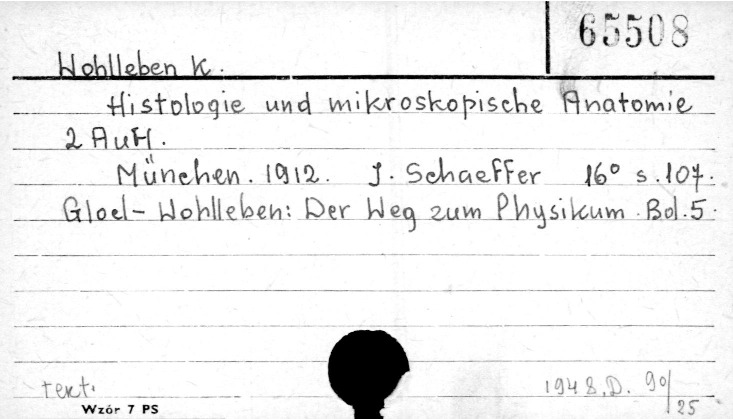 65508
Wohlleben K.
Histologie und mikroskopische Anatomie
2 Aufl.
München. 1912. J. Schaeffer 16° s. 107.
Gloel-Wohlleben: Der Weg zum Physikum. Bd. 5.
tekt.
1948.D. 90/25
Wzór 7 PS